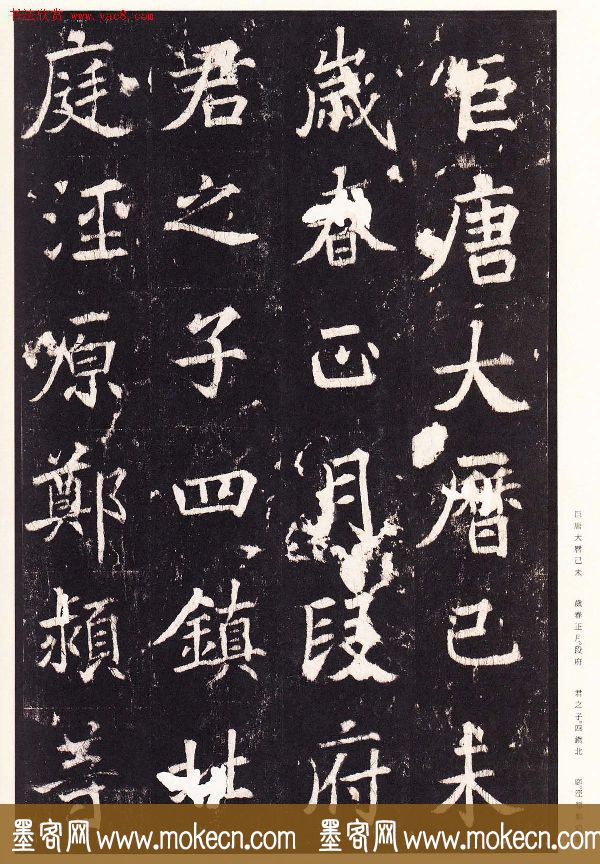 书法欣赏 www.yac8.com
巨唐大曆己未
歲春正月段府
君之子四鎮北
庭涇原鄭頴等
巨唐大曆己未 歲春正月段府 君之子四鎮北
墨客网 www.mokecn.com 墨客网 www.mokecn.com